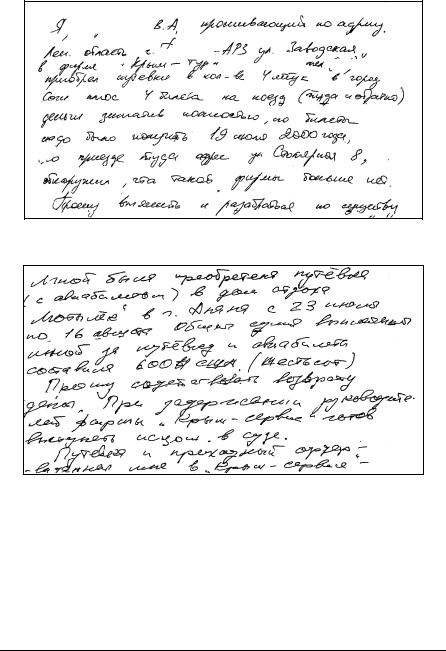 Я, " В.А, проживающий по адресу.
Лен. область г. -АРЗ ул. Заводская " "
в фирме "Крым-тур" тел.
приобрел путевки в кол-ве 4 штук в город
Сочи плюс 4 билета на поезд (туда и обратно)
деньги заплатив полностью, но билеты
надо было получить 19 июля 2000 года,
по приезде туда адрес ул Столярная 8,
обнаружил, что такой фирмы больше нет.
Прошу выяснить и разобраться по существу
Мной была приобретена путёвка
(с авиабилетом) в дом отдыха
"в г. Анапа с 23 июля
по 16 августа Общая сумма выплаченная
мной за путёвку и авиабилеты
составила 600 $ США. (шестьсот)
Прошу содействовать возврату
денег. При задержании руководите-
лей фирмы "Крым-сервис" готов
выступить истцом в суде.
Путёвка и приходный ордер -
- мне в "Крым-сервисе" -